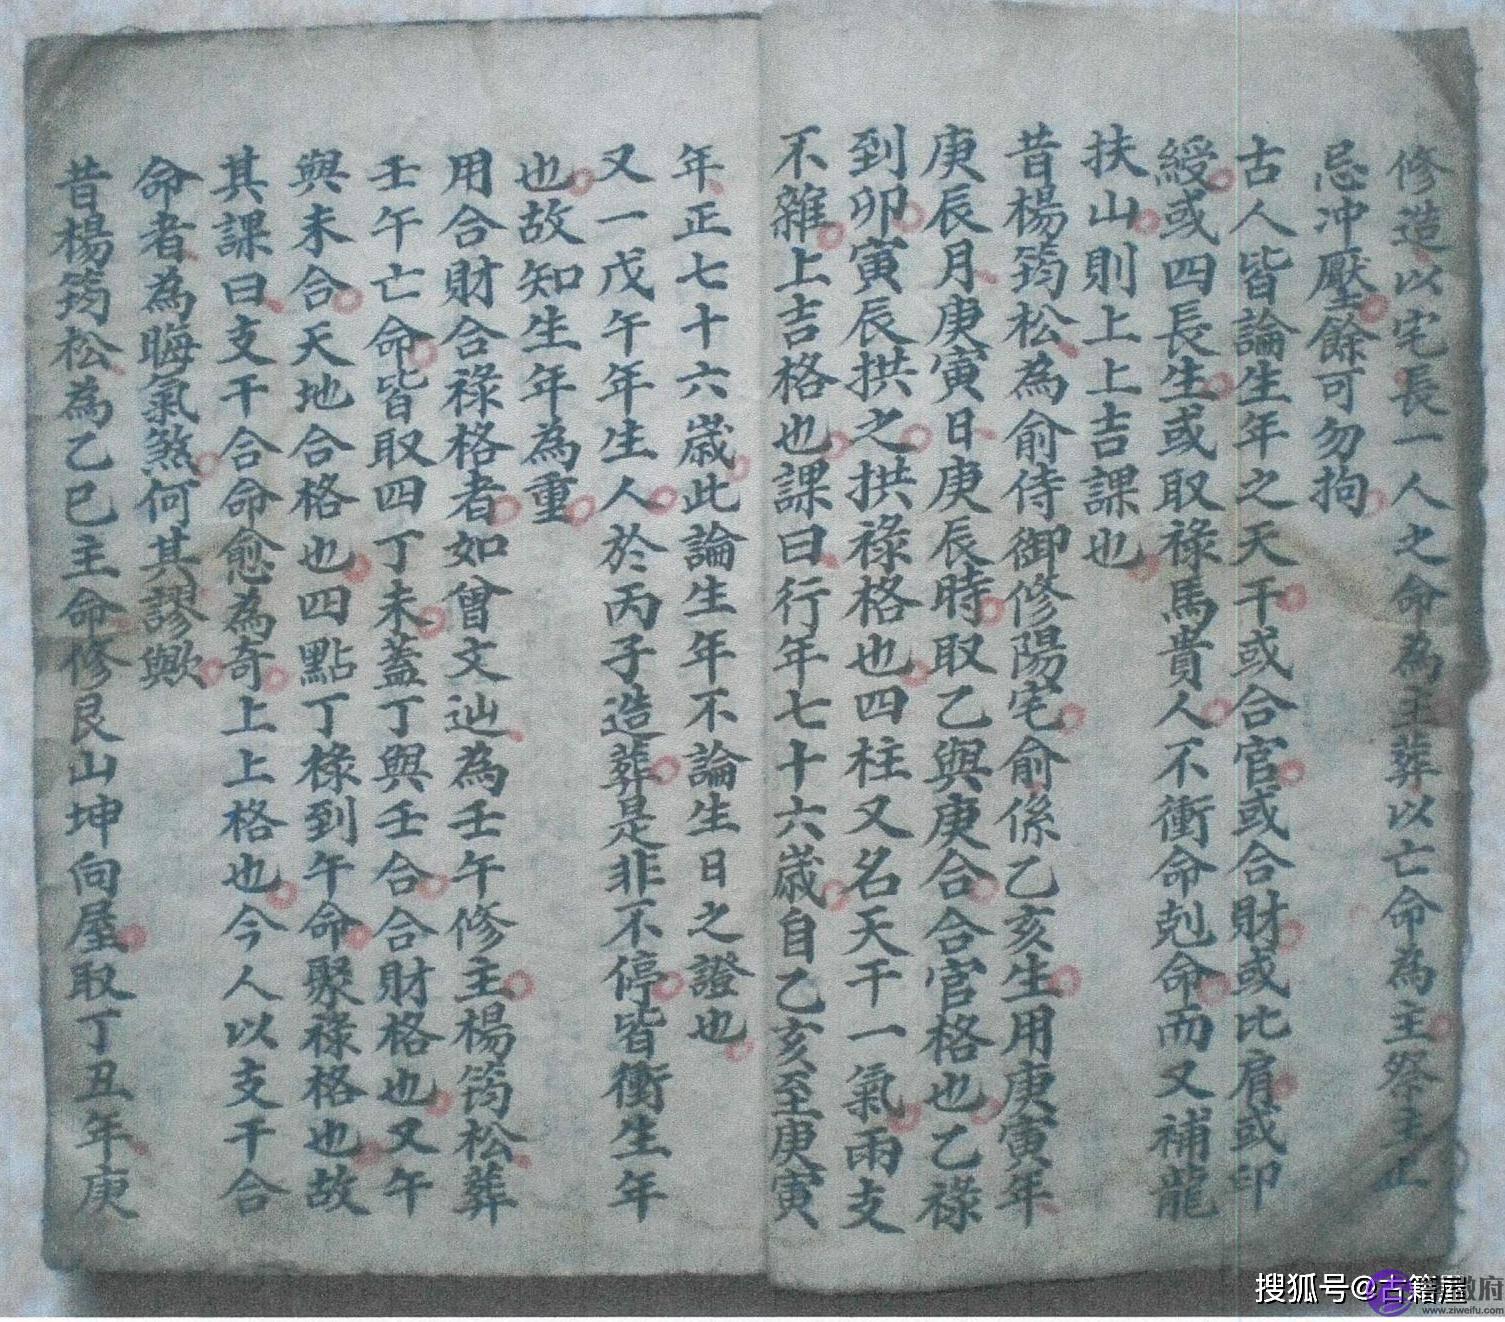 修造以宅長一人之命為主葬以亡命為主祭主正
忌冲壓餘可勿拘
古人皆論生年之天干或合官或合財或比肩或印
綬或四長生或取祿馬貴人不衝命剋命而又補龍
扶山則上上吉課也
昔楊筠松為俞侍御修陽宅俞係乙亥生用庚寅年
庚辰月庚寅日庚辰時取乙與庚合合官格也乙祿
到卯寅辰拱之拱祿格也四柱又名天干一氣兩支
不雜上吉格也課曰行年七十六歲自乙亥至庚寅
年正七十六歲此論生年不論生日之證也
又一戊午年生人於丙子造葬是非不停皆衝生年
也故知生年為重
用合財合祿格者如曾文辿為壬午修主楊筠松葬
壬午亡命皆取四丁未蓋丁與壬合合財格也又午
與未合天地合格也四點丁祿到午命聚祿格也故
其課曰支干合命愈為奇上上格也今人以支干合
命者為晦氣煞何其謬歟
昔楊筠松為乙巳主命修艮山坤向屋取丁丑年庚
搜狐号@古籍屋
www.ziweifu.com